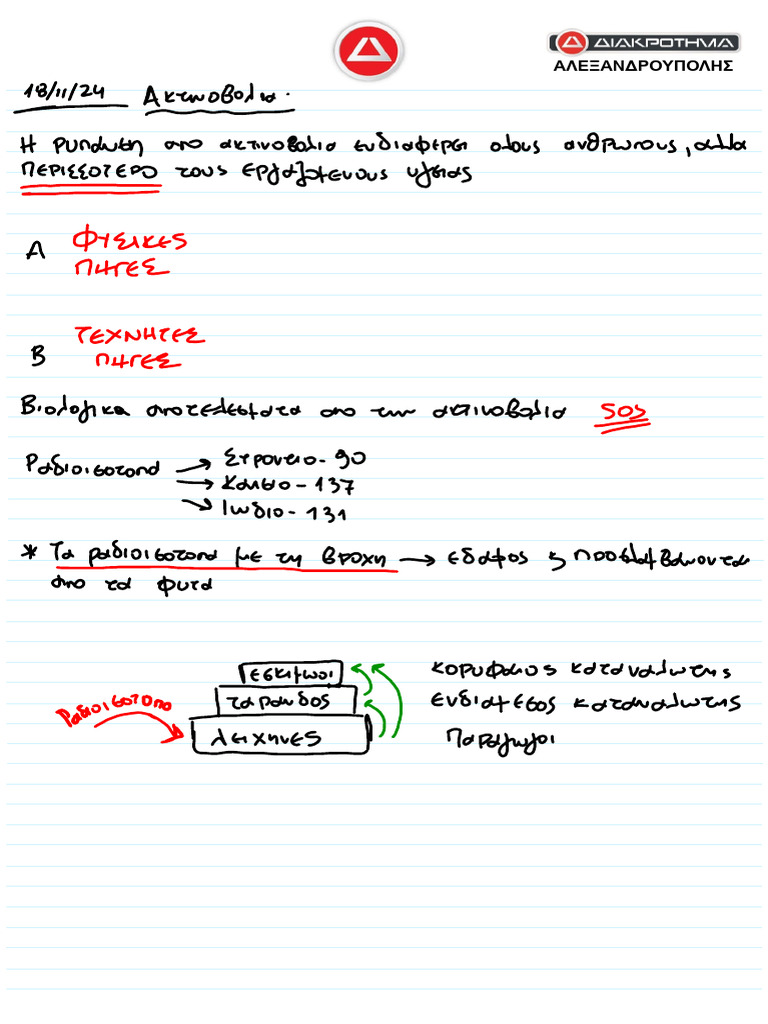 ΔΙΑΚΡΟΤΗΜΑ
ΑΛΕΞΑΝΔΡΟΥΠΟΛΗΣ
18/11/24 Ακτινοβολια.
Η ρυπανση απο ακτινοβολια ενδιαφερει ολους ανθρωπους, αλλα
ΠΕΡΙΣΣΟΤΕΡΟ τους εργαζομενους υγειας
Α ΦΥΣΙΚΕΣ
ΠΗΓΕΣ
ΤΕΧΝΗΤΕΣ
Β ΠΗΓΕΣ
Βιολογικα αποτελεσματα απο την ακτινοβολια SOS
Ραδιοισοτοπα → Στροντιο-90
→ Καισιο-137
→ Ιωδιο-131
* Τα ραδιοισοτοπα με τη βροχη → εδαφος & προσλαμβανονται
απο τα φυτα
εσκιμωοι κορυφαιος καταναλωτης
Ραδιοισοτοπα ταρανδος ενδιαμεσος καταναλωτης
λειχηνες Παραγωγοι